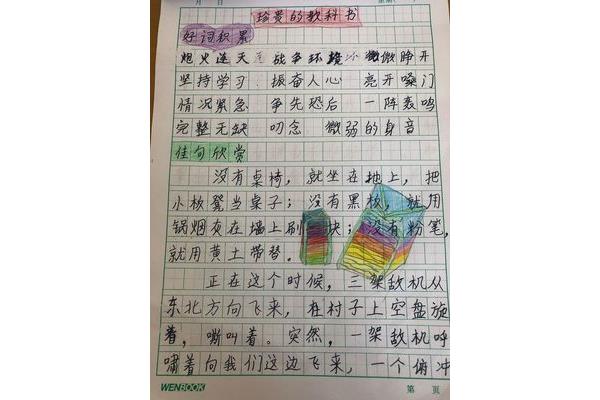 月 日
珍贵的教科书
好词积累
炮火连天 战争环境 微微睁开
坚持学习 振奋人心 亮开嗓门
情况紧急 争先恐后 一阵轰鸣
完整无缺 叨念 微弱的身音
佳句欣赏
没有桌椅，就坐在地上，把
小板凳当桌子；没有黑板，就用
锅烟灰在墙上刷一块；没有粉笔，
就用黄土带替。
正在这个时候，三架敌机从
东北方向飞来，在村子上空盘旋
着，嘶叫着。突然，一架敌机呼
啸着向我们这边飞来，一个俯冲
WENBOOK 第 页